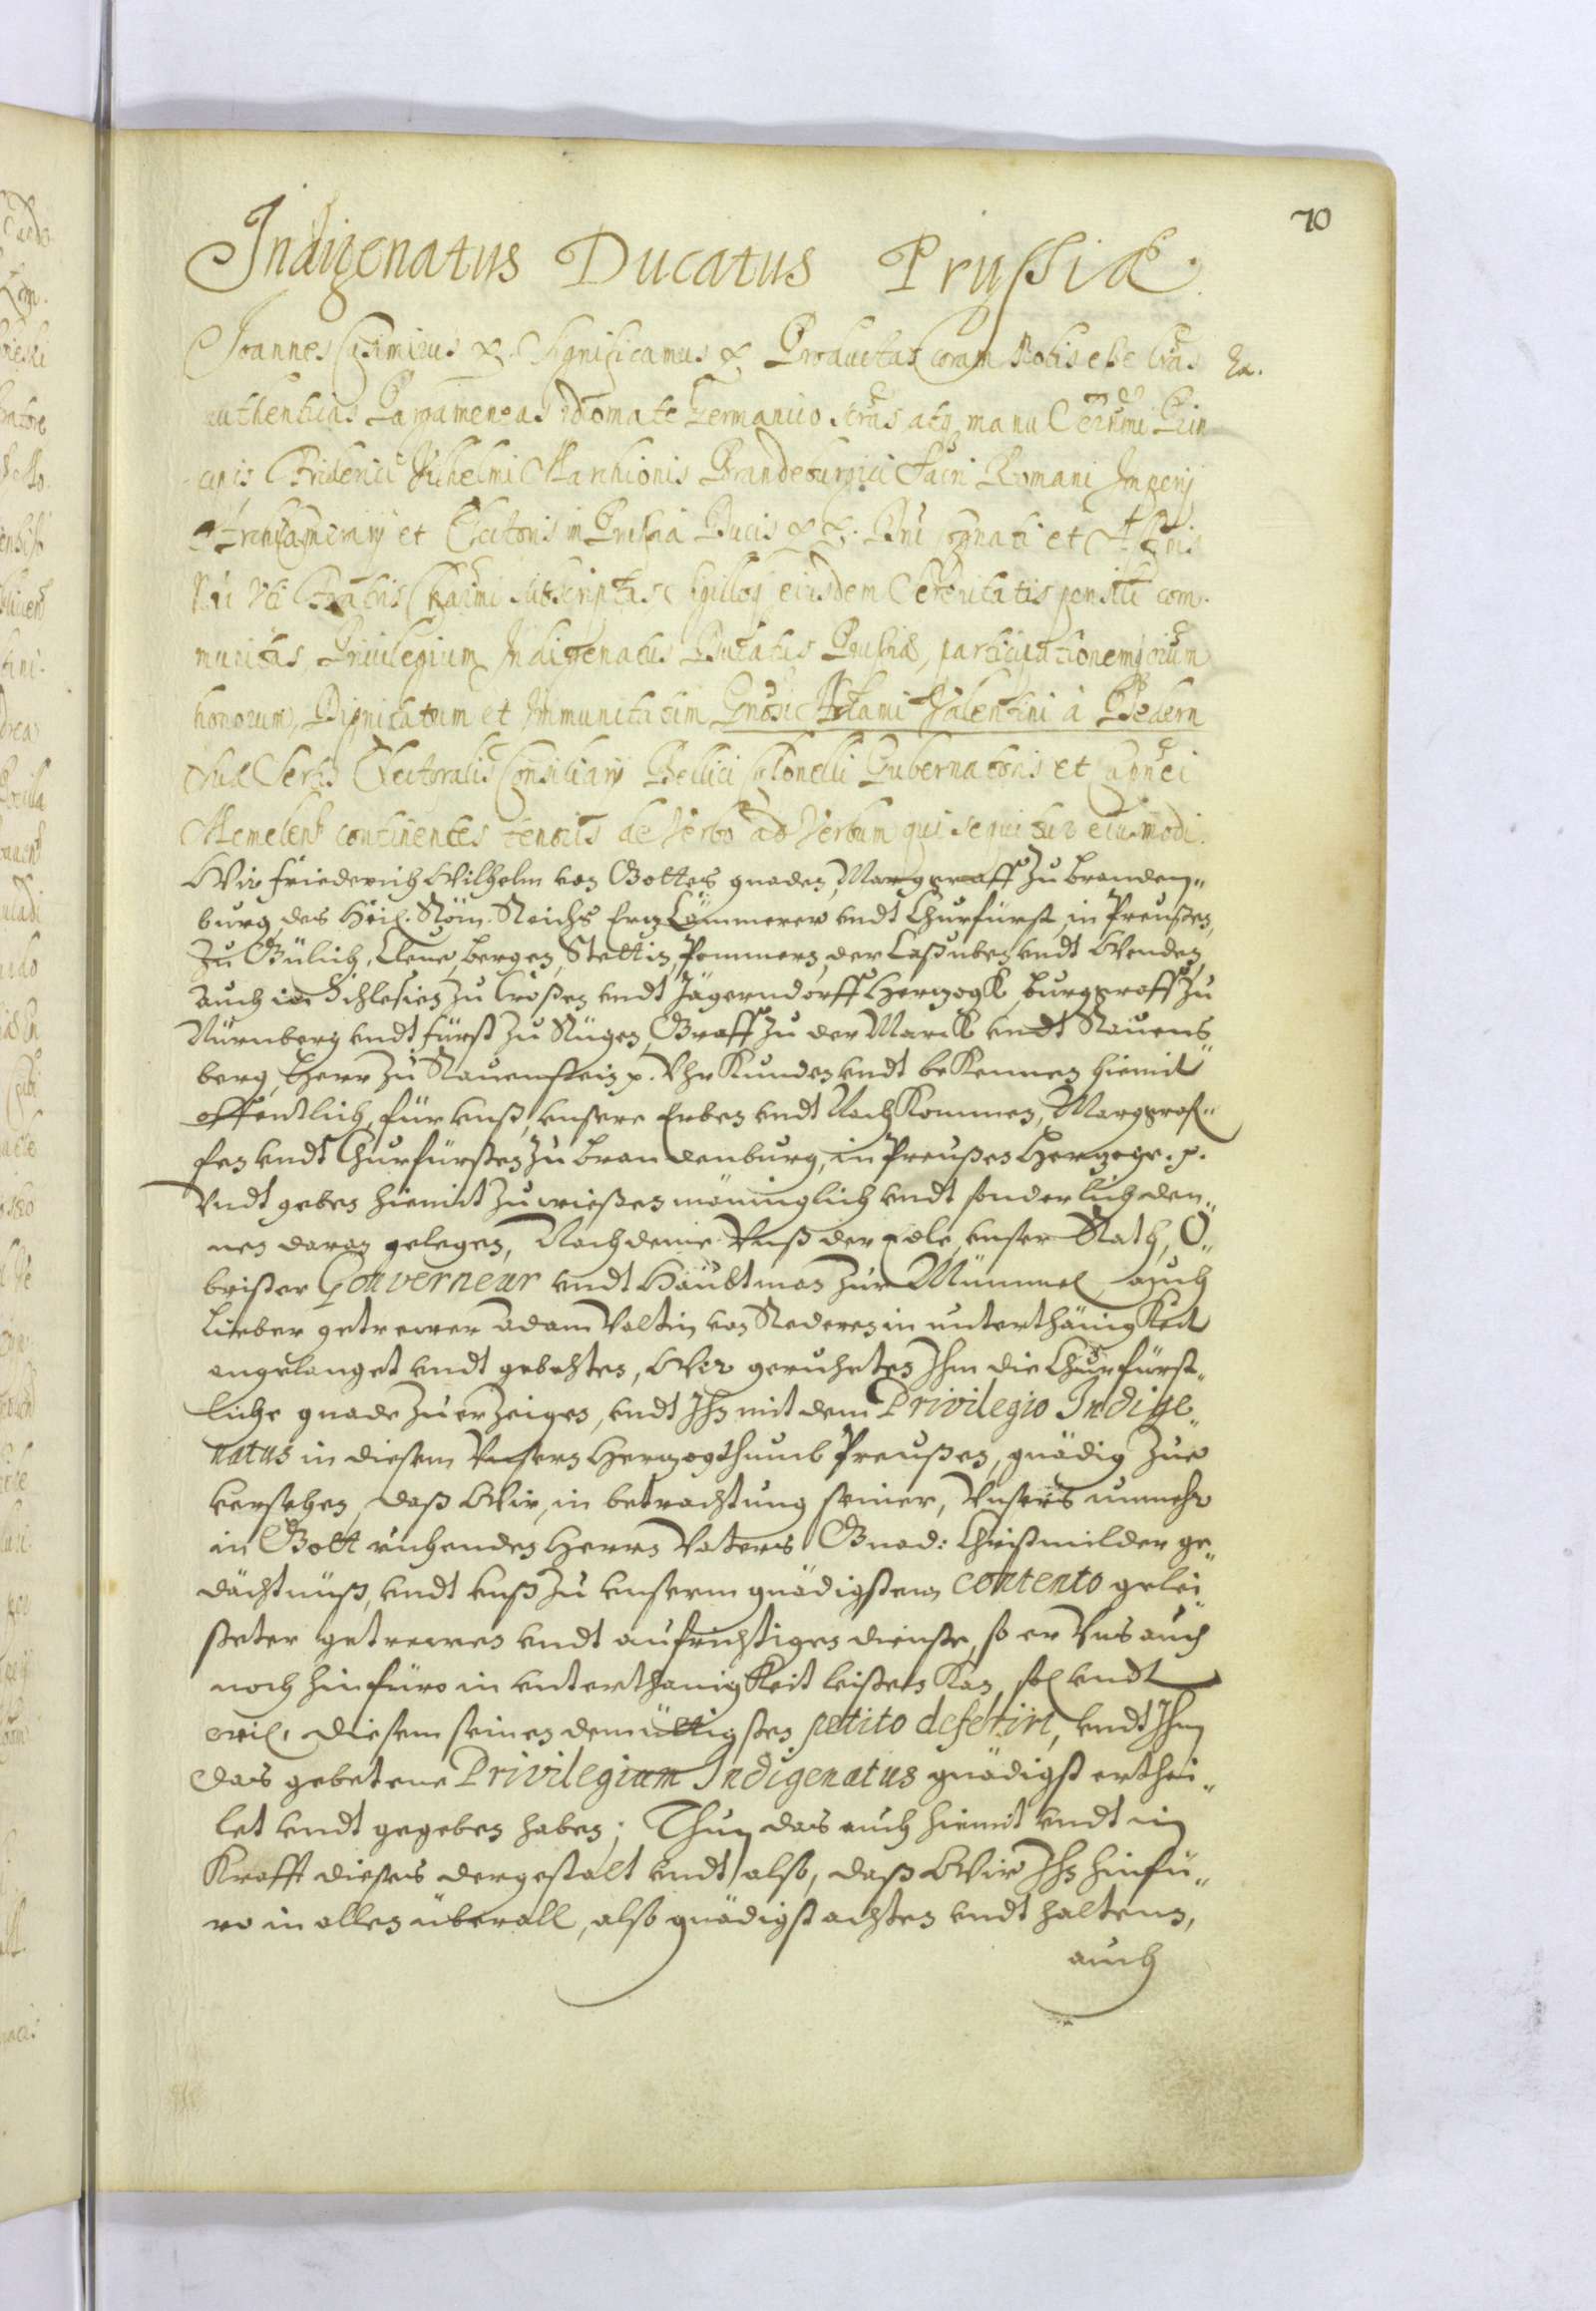 70
Indigenatus Ducatus Prussiæ.
Joannes Casimirus &. Significamus & Productas coram Nobis esse lras
authenticas Pargameneas Idiomate Germanico scrtas atq manu Serenmi Prin
cipis Friderici Wilhelmi Marchionis Brandeburgici Sacri Romani Imperij
Archicamerarij et Electoris in Prussia Ducis & &. Dni Cognati et Affinis
Nri uti Fratris Charmi subscriptas Sigilloq eiusdem Serenitatis pensili com-
munitas Priuilegium Indigenatus Ducatus Prussiæ, participationemq iurium
honorum, Dignitatum et Immunitatum Gnosi Adami Valentini à Redern
Suæ Sertis Electoralis Consiliarij Bellici Colonelli Gubernatoris et
Memelens continentes tenoris de Verbo ad Verbum qui sequitur eiusmodi.
Wir Friederich Wilhelm von Gottes gnaden, Marggraff zu Branden„
burg, des Heil. Röm. Reichs Ertz Cämmerer undt Churfürst, in Preußen,
zu Gülich, Cleve, Bergen, Stettin, Pommern, der Caßuben undt Wenden,
auch in Schlesien zu Croßen undt Jägerndorff Hertzogk, Burggraff zu
Nürnberg undt Fürst zu Rügen, Graff zu der Marck undt Ravens„
berg, Herr zu Ravenstein p. Uhrkunden undt bekennen hiemit
offentlich, für unß, unsere Erben undt Nachkommen, Marggraf„
fen undt Churfürsten zu Brandenburg, in Preußen Hertzoge. p.
Undt geben hiemit zu wießen männiglich undt sonderlich den„
nen daran gelegen, Nach deme Unß der Edle, unser Rath, O„
brister Gouverneur undt Haubtman zur Mümmel, auch
lieber getrewer Adam Valtin von Rederen in unterthänigkeit
angelanget undt gebehten, Wir geruheten Ihm die Churfürst„
liche gnade zu erzeigen, undt Ihn mit dem Privilegio Indige„
natus in diesem Unsern Hertzogthumb Preußen, gnädig zue
versehen, daß Wir, in betrachtung seiner, Unsers nunmehr
in Gott ruhenden Herrn Vaters Gnad: Christmilder ge„
dächtnüß, undt unß zu unserm gnädigstem contento gelei„
steter getrewen undt aufrichtigen dienste, so er Uns auch
noch hinfüro in unterthanigkeit leisten kan, sol undt
wil, diesem seinen demüttigsten petito deferirt, undt Ihm
das gebetene Privilegium Indigenatus gnädigst erthei„
let undt gegeben haben; Thun das auch hiemit undt in
Krafft dieses dergestalt undt also, daß Wir Ihn hinfü„
ro in allen überall, also gnädigst achten undt haltenn,
auch